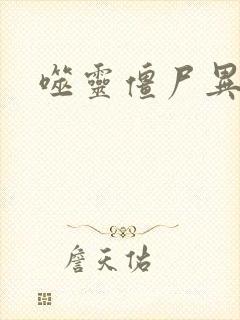 噬靈僵尸異
詹天佑